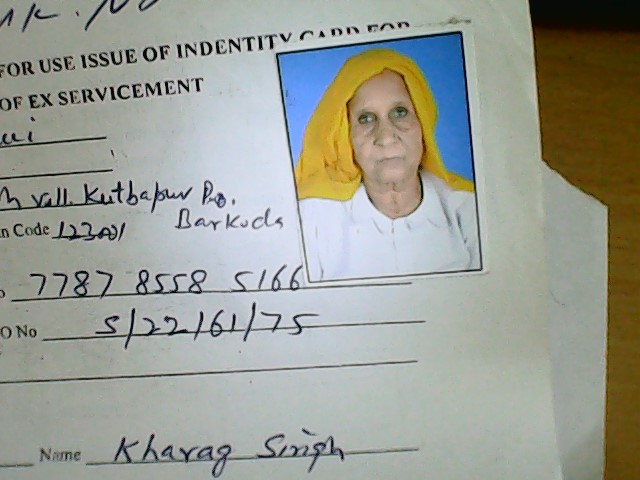 FOR USE ISSUE OF INDENTITY CARD FOR
OF EX SERVICEMENT
Vill. Kutbapur Po.
n Code 123001 Barkoda
7787 8558 5166
O No 5/22/61/75
Name Kharag Singh